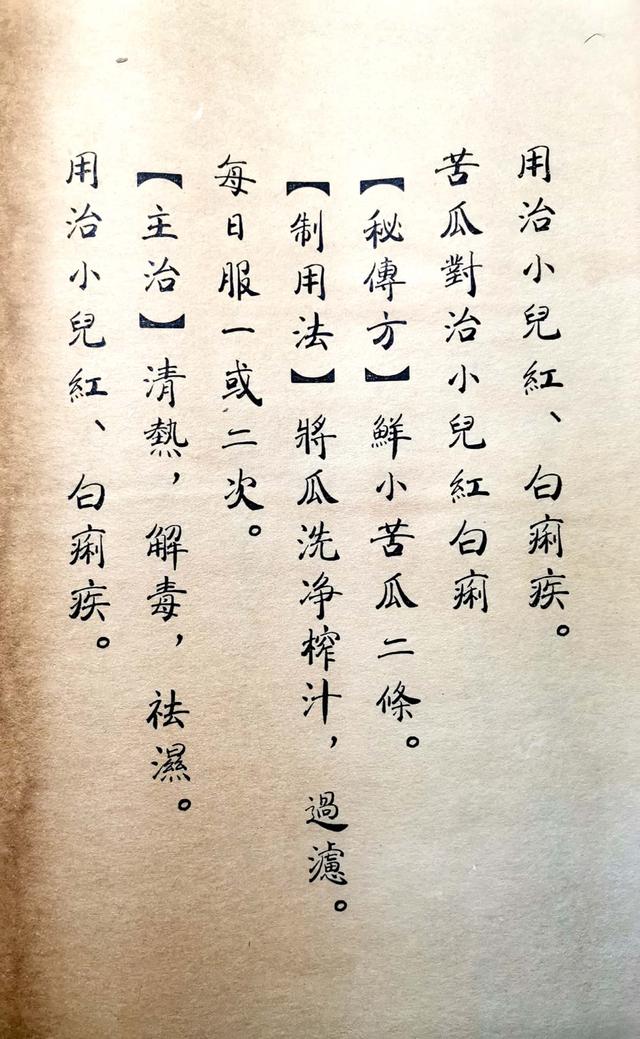 用治小兒紅、白痢疾。
苦瓜對治小兒紅白痢
【秘傳方】鮮小苦瓜二條。
【制用法】將瓜洗净榨汁，過濾。
每日服一或二次。
【主治】清熱，解毒，祛濕。
用治小兒紅、白痢疾。